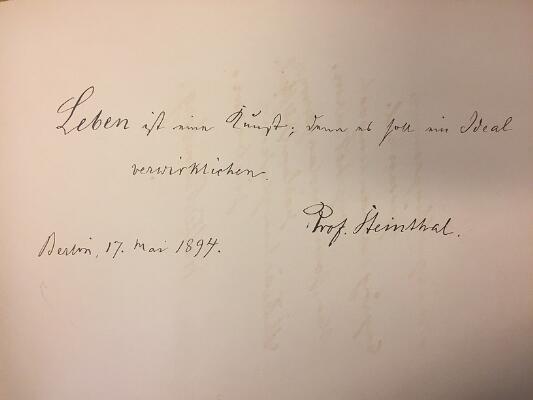 Leben ist eine Kunst; denn es soll ein Ideal
verwirklichen.
Prof. Steinthal.
Berlin, 17. Mai 1894.